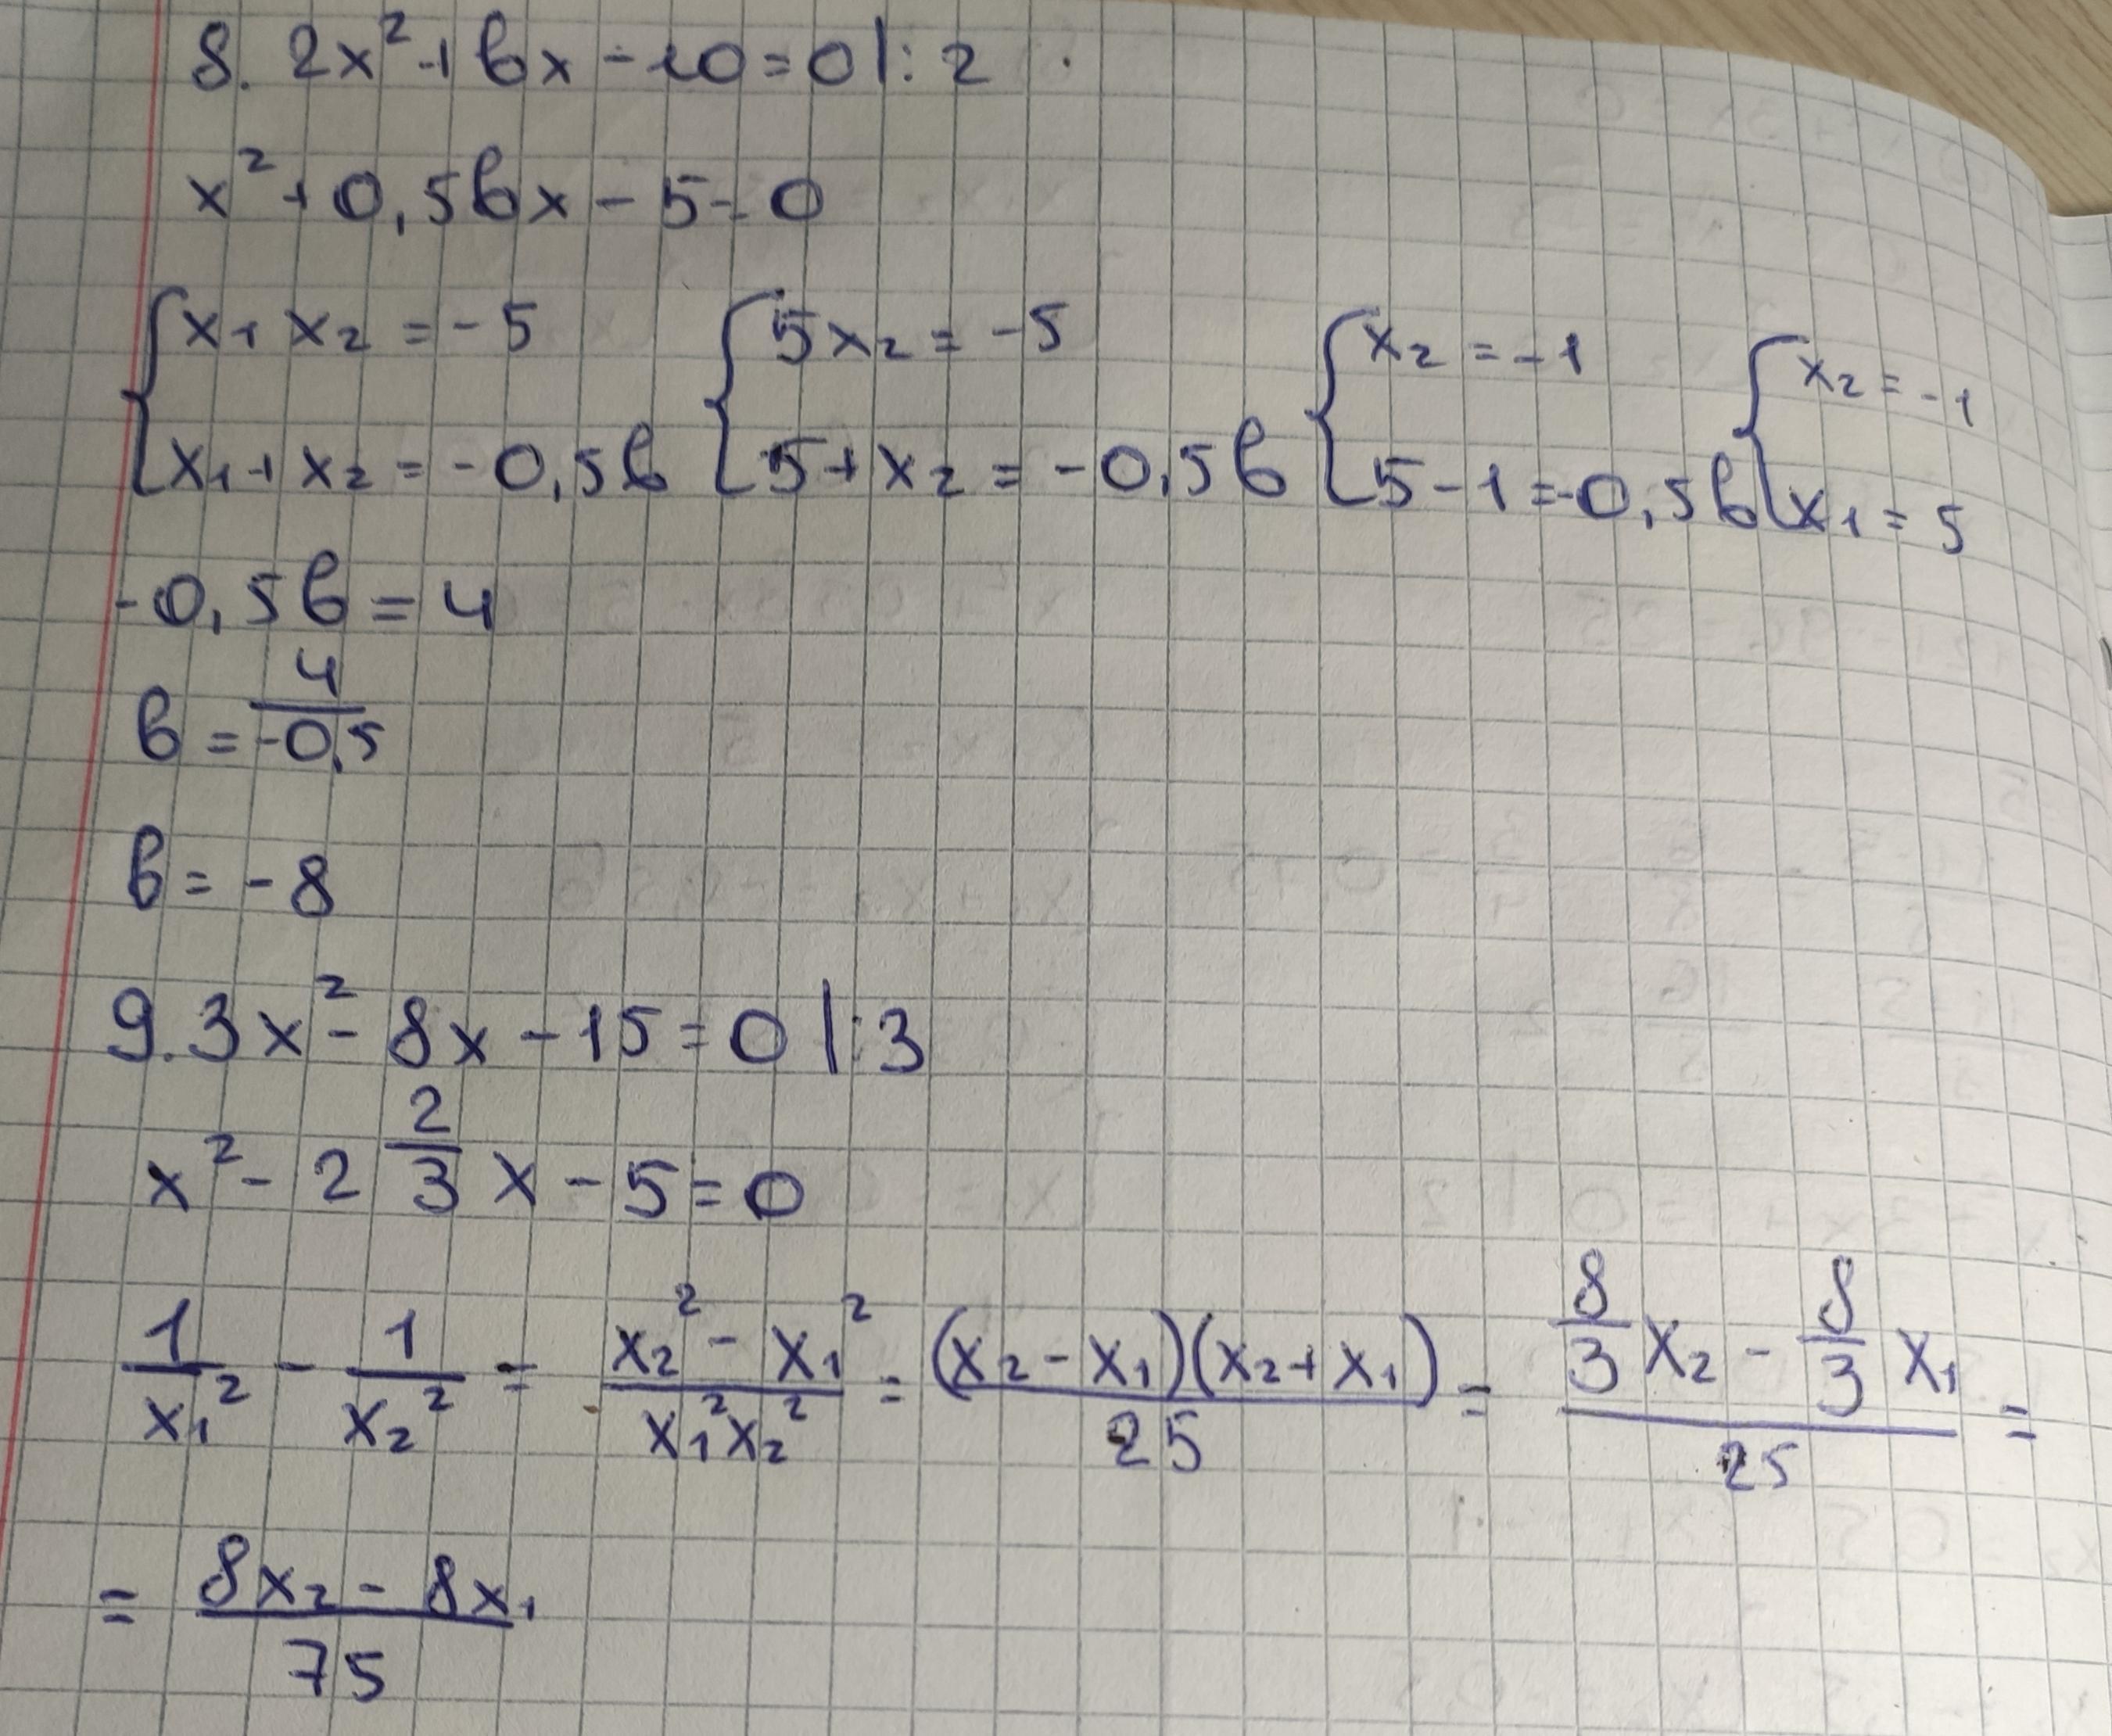 8. 2x² + bx - 10 = 0 |: 2
x² + 0,5bx - 5 = 0
{ x₁ x₂ = -5 { 5x₂ = -5 { x₂ = -1 { x₂ = -1
{ x₁ + x₂ = -0,5b { 5 + x₂ = -0,5b { 5 - 1 = -0,5b { x₁ = 5
-0,5b = 4
b = 4/-0,5
b = -8
9. 3x² - 8x - 15 = 0 |: 3
x² - 2 2/3 x - 5 = 0
1/x₁² - 1/x₂² = (x₂² - x₁²)/(x₁² x₂²) = (x₂ - x₁)(x₂ + x₁)/25 = (8/3 x₂ - 8/3 x₁)/25 =
= (8x₂ - 8x₁)/75